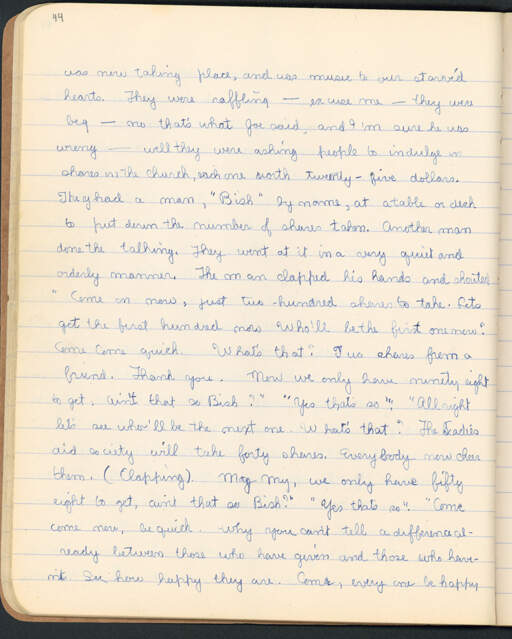 44
was now taking place, and was music to our starved
hearts. They were raffling — excuse me — they were
beg — no that's what Joe said, and I'm sure he was
wrong — well they were asking people to indulge in
shares in the church, each one worth twenty-five dollars.
They had a man, "Bish" by name, at a table or desk
to put down the number of shares taken. Another man
done the talking. They went at it in a very quiet and
orderly manner. The man clapped his hands and shouted
"Come on now, just two-hundred shares to take. Lets
get the first hundred now Who'll be the first one now?
Come Come quick. What's that? Two shares from a
friend. Thank you. Now we only have ninety eight
to get. ain't that so Bish?" "Yes thats so". "All right
let's see who'll be the next one. What's that? The Ladies
aid society will take forty shares. Everybody now cheer
them. (Clapping). My my, we only have fifty
eight to get, aint that so Bish?" "Yes thats so". "Come
come now, be quick. Why you can't tell a difference al-
ready between those who have given and those who have-
n't. See how happy they are. Come, every one be happy